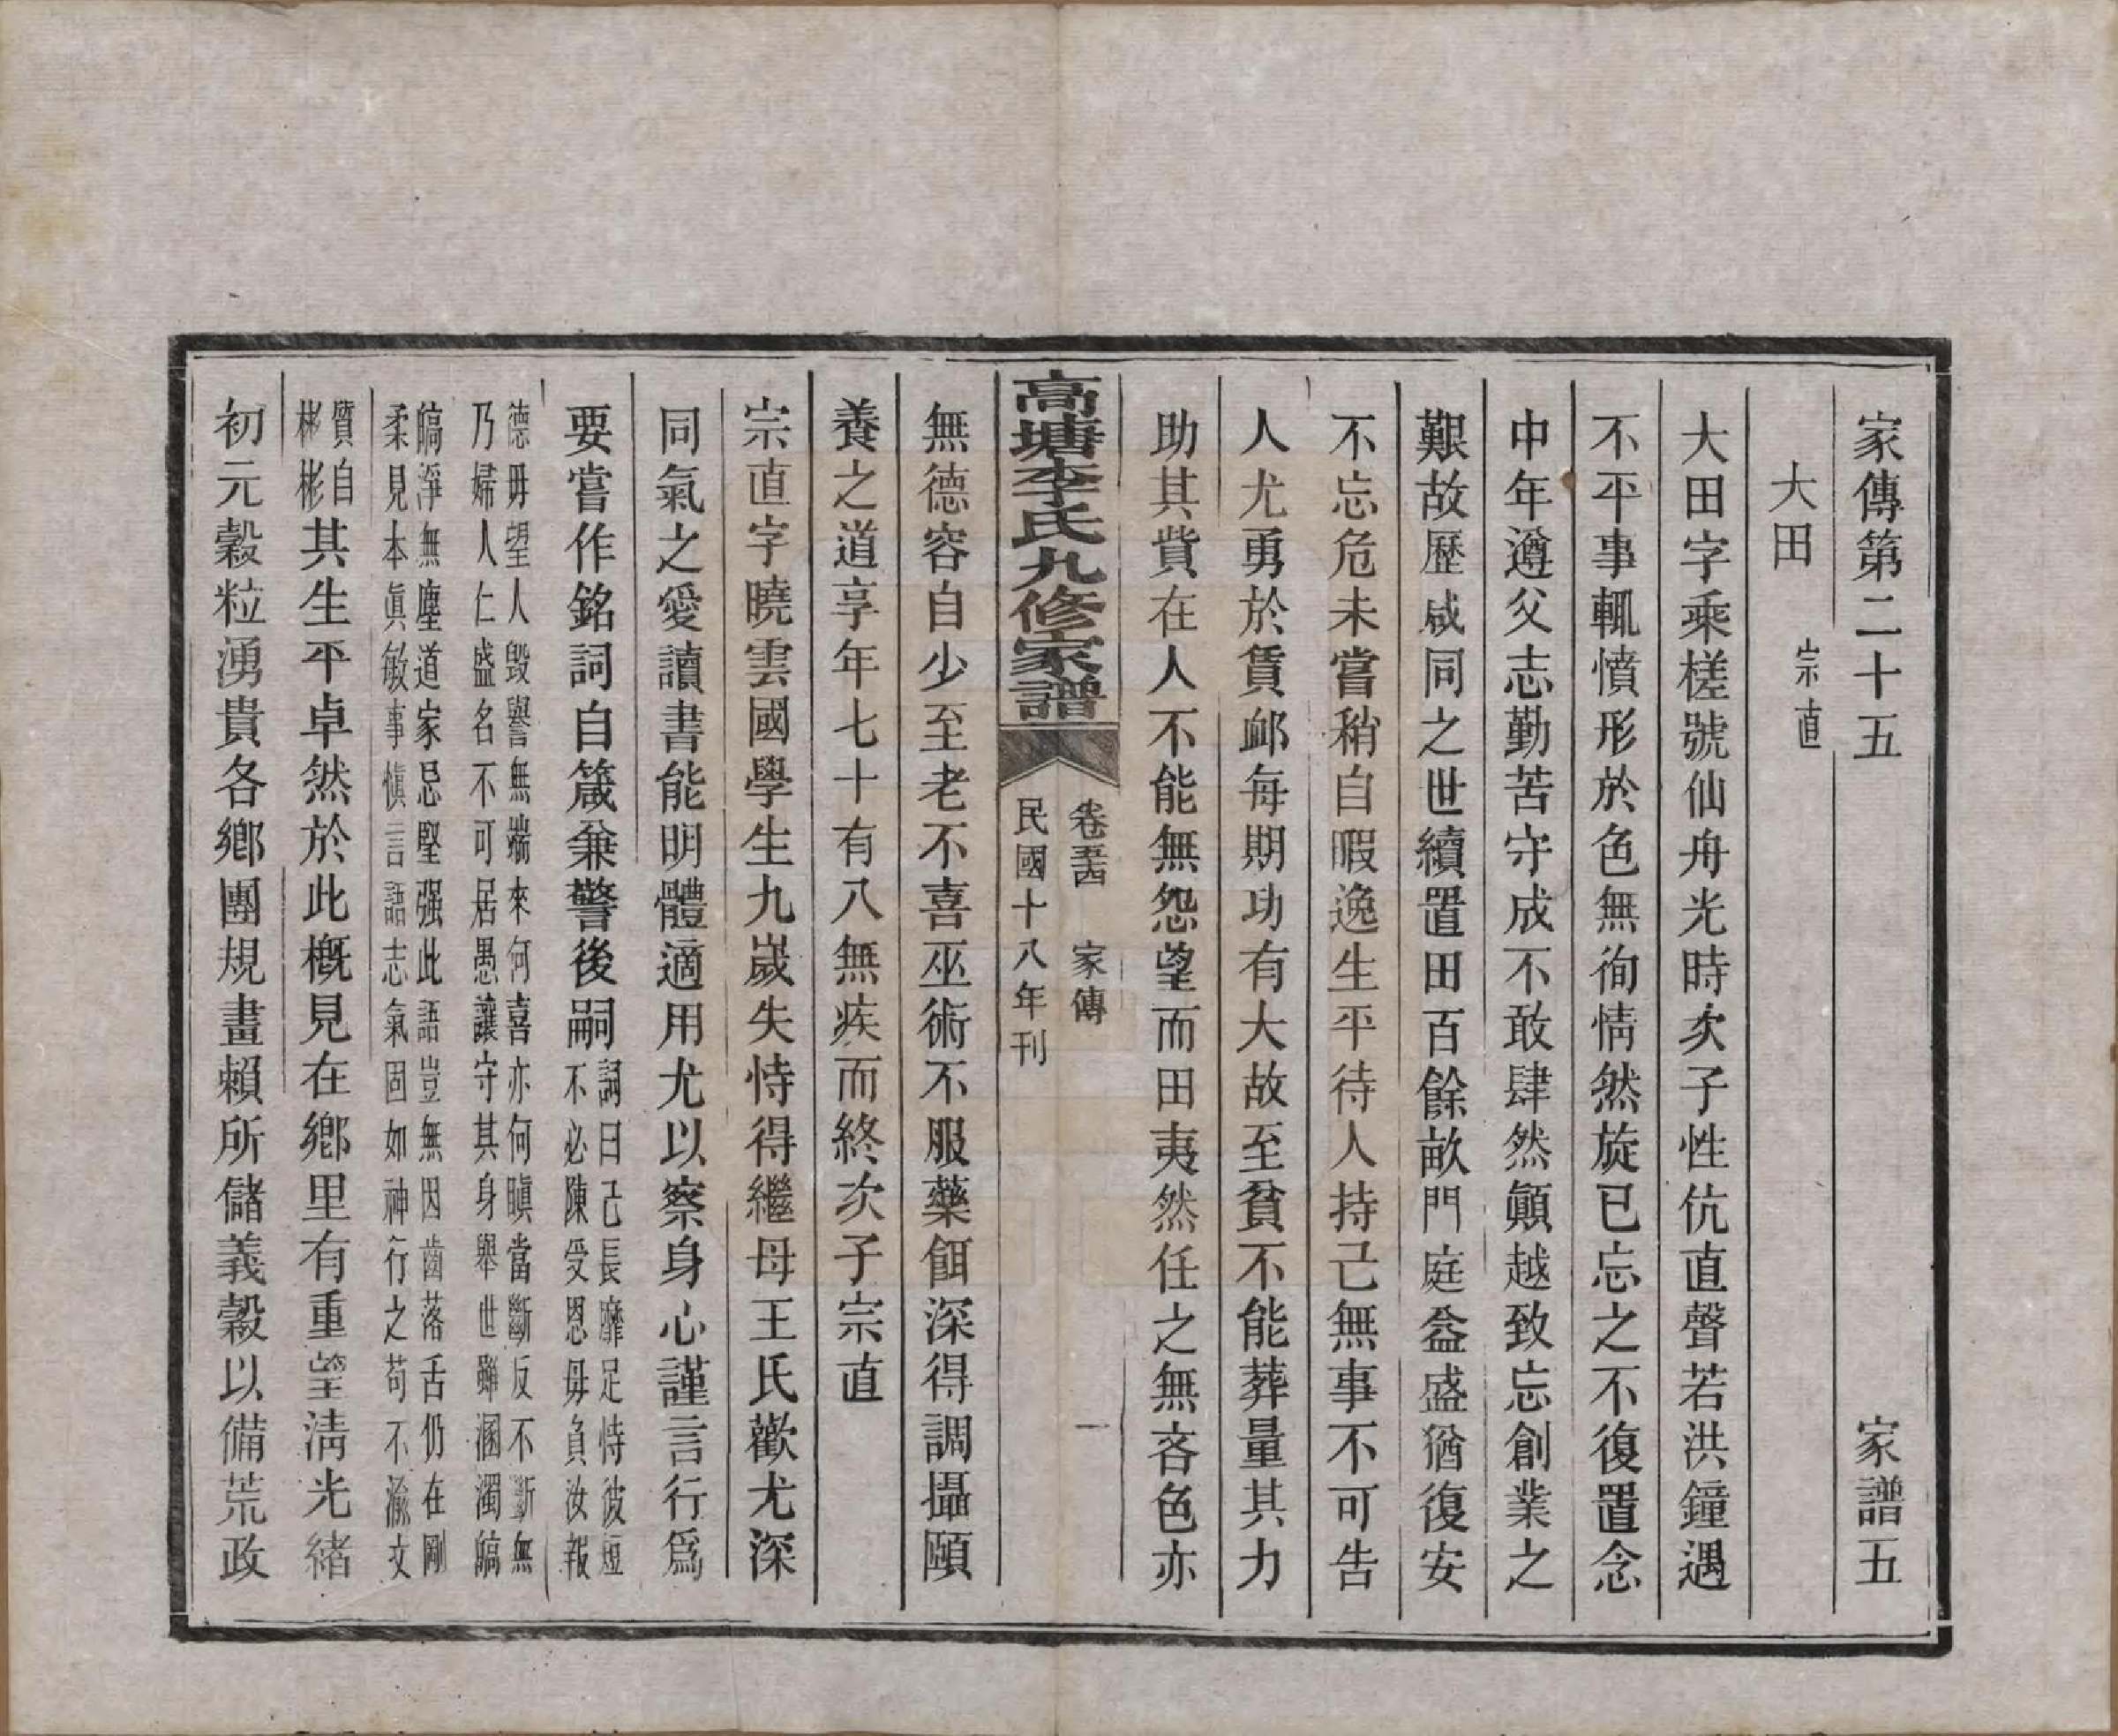 家傳第二十五　家譜五
大田　宗直
大田字乘槎號仙舟光時次子性伉直聲若洪鐘遇
不平事輒憤形於色無徇情然旋已忘之不復置念
中年遵父志勤苦守成不敢肆然顚越致忘創業之
艱故歷咸同之世續置田百餘畝門庭益盛猶復安
不忘危未嘗稍自暇逸生平待人持己無事不可告
人尤勇於賃邮每期功有大故至貧不能葬量其力
助其貲在人不能無怨望而田夷然任之無吝色亦
高塘李氏九修家譜
卷五十四　家傳　一
民國十八年刊
無德容自少至老不喜巫術不服藥餌深得調攝頤
養之道享年七十有八無疾而終次子宗直
宗直字曉雲國學生九歲失恃得繼母王氏歡尤深
同氣之愛讀書能明體適用尤以察身心謹言行爲
要嘗作銘詞自箴兼警後嗣詞曰己長靡足恃彼短
不必陳受恩毋負汝報
德毋望人毀譽無端來何喜亦何瞋當斷反不斷無
乃婦人仁盛名不可居愚讓守其身舉世雖溷濁縞
縞淨無塵道家忌堅强此語豈無因齒落舌仍在剛
柔見本眞敏事愼言語志氣固如神行之苟不渝文
質自
彬彬其生平卓然於此槪見在鄉里有重望淸光緖
初元穀粒湧貴各鄉團規畫賴所儲義穀以備荒政